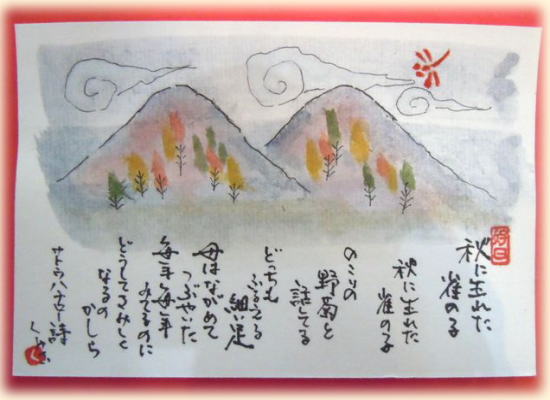 秋に生れた
雀の子
秋に生れた
雀の子
のこりの
野菊と
話してる
どっちも
ふるえる
細い足
母はながめて
つぶやいた
毎年毎年
みてるのに
どうしてさみしく
なるの
かしら
サトウハチロー詩